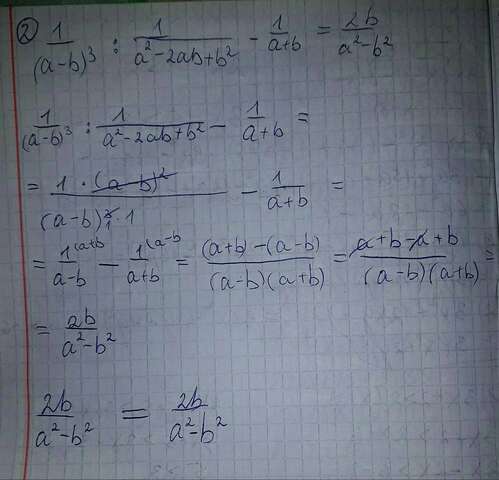 ② 1/(a-b)³ : 1/(a²-2ab+b²) - 1/(a+b) = 2b/(a²-b²)
1/(a-b)³ : 1/(a²-2ab+b²) - 1/(a+b) =
= 1·(a-b)²/((a-b)³·1) - 1/(a+b) =
= 1^(a+b/(a-b) - 1^(a-b/(a+b) = ((a+b)-(a-b))/((a-b)(a+b)) = (a+b-a+b)/((a-b)(a+b)) =
= 2b/(a²-b²)
2b/(a²-b²) = 2b/(a²-b²)